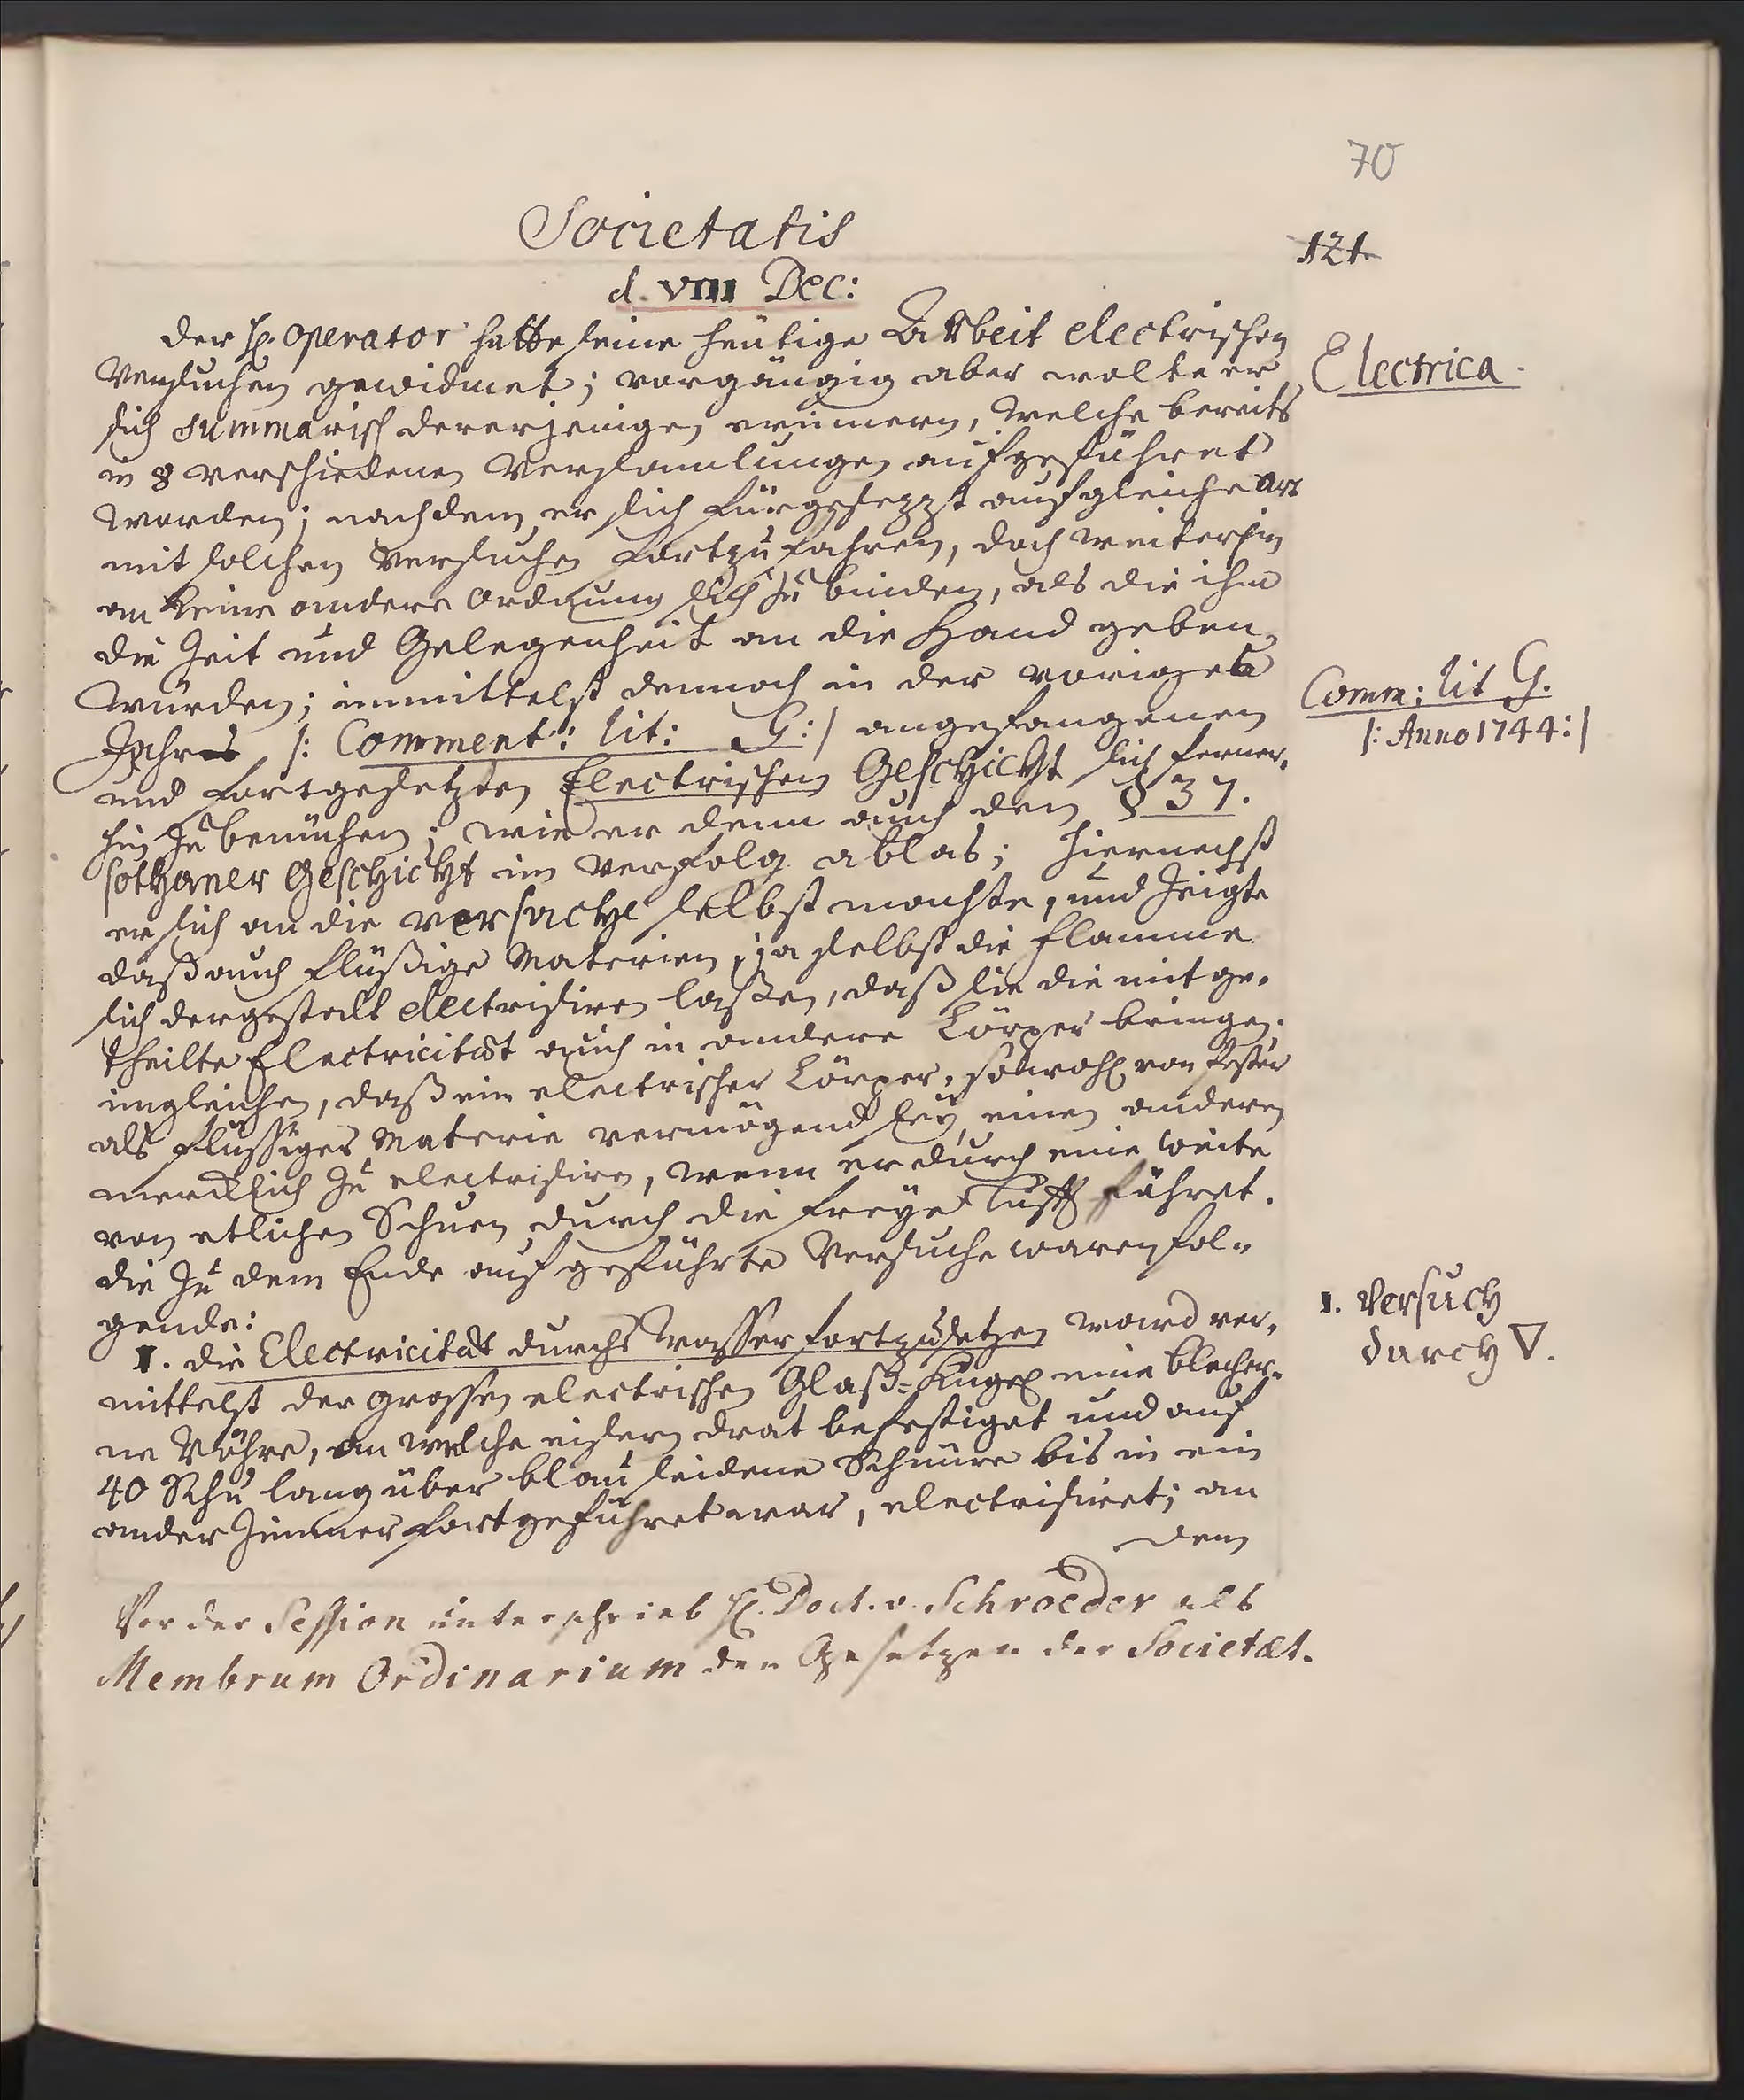 70
Societatis
121.
d. VIII Dec:
Der H. Operator hatte seine heutige Arbeit electrischen
Versuchen gewidmet; vorgängig aber wolte er
Electrica.
sich summarisch dererjenigen erinnern, welche bereits
in 8 verschiedenen Versamlungen aufgeführet
worden; nachdem er sich fürgesezzt auf gleiche Art
mit solchen Versuchen fortzufahren, doch weiterhin
an keine andere Ordnung sich zu binden, als die ihm
die Zeit und Gelegenheit an die Hand geben
würden; inmittelst dennoch in der voriges
Comm: lit G.
Jahres /: Comment: lit: G:/ angefangenen
/: Anno 1744:/
und fortgesetzten Electrischen Geschicht sich ferner-
hin zu bemühen; wie er denn auch den § 37.
sothaner Geschicht im Verfolg ablas; hiernechst
er sich an die Versuche selbst machte, und zeigte
daß auch flüßige Materien, ja selbst die Flamme
sich dergestalt electrisiren laßen, daß sie die mitge-
theilte Electricität auch in andere Körper bringen.
ingleichen, daß ein electrischer Körper, sowohl von fester
als flüssiger Materie vermögend sey, einen anderen
mercklich zu electrisiren, wenn er durch eine weite
von etlichen Schuen durch die freye Lufft fähret.
Die zu dem Ende aufgeführte Versuche waren fol-
gende:
1. Versuch
durch ∇.
I. Die Electricität durchs Wasser fortzusetzen ward ver-
mittelst der grossen electrischen Glaß-Kugel eine blecher-
ne Röhre, an welche eisern drat befestiget und auf
40 Schu lang über blau seidene Schnüre bis in ein
ander Zimmer fortgeführet war, electrisiret; an
dem
Vor der Session unterschrieb H. Doct. v. Schroeder als
Membrum Ordinarium den Gesetzen der Societæt.